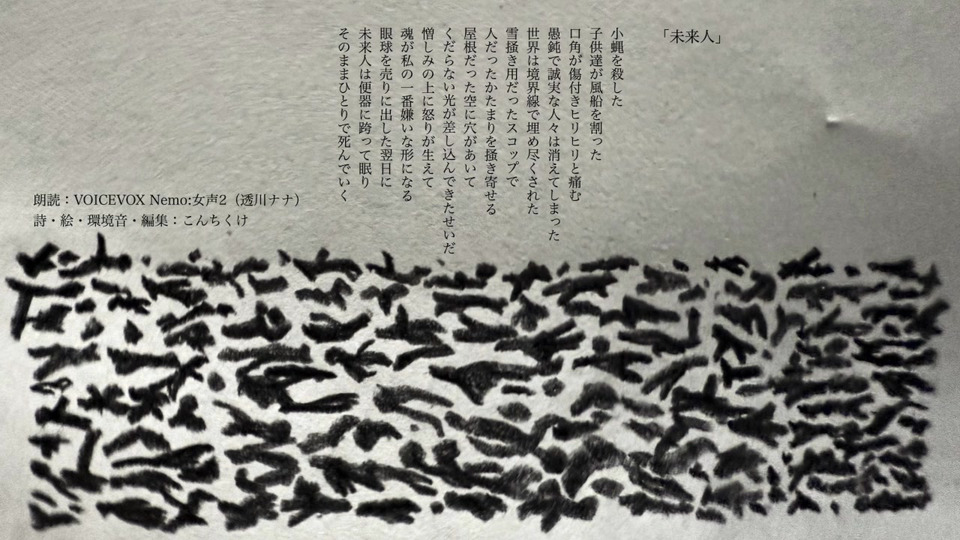 「未来人」
小蝿を殺した
子供達が風船を割った
口角が傷付きヒリヒリと痛む
愚鈍で誠実な人々は消えてしまった
世界は境界線で埋め尽くされた
雪掻き用だったスコップで
人だったかたまりを掻き寄せる
屋根だった空に穴があいて
くだらない光が差し込んできたせいだ
憎しみの上に怒りが生えて
魂が私の一番嫌いな形になる
眼球を売りに出した翌日に
未来人は便器に跨って眠り
そのままひとりで死んでいく
朗読：VOICEVOX Nemo:女声2（透川ナナ）
詩・絵・環境音・編集：こんちくけ